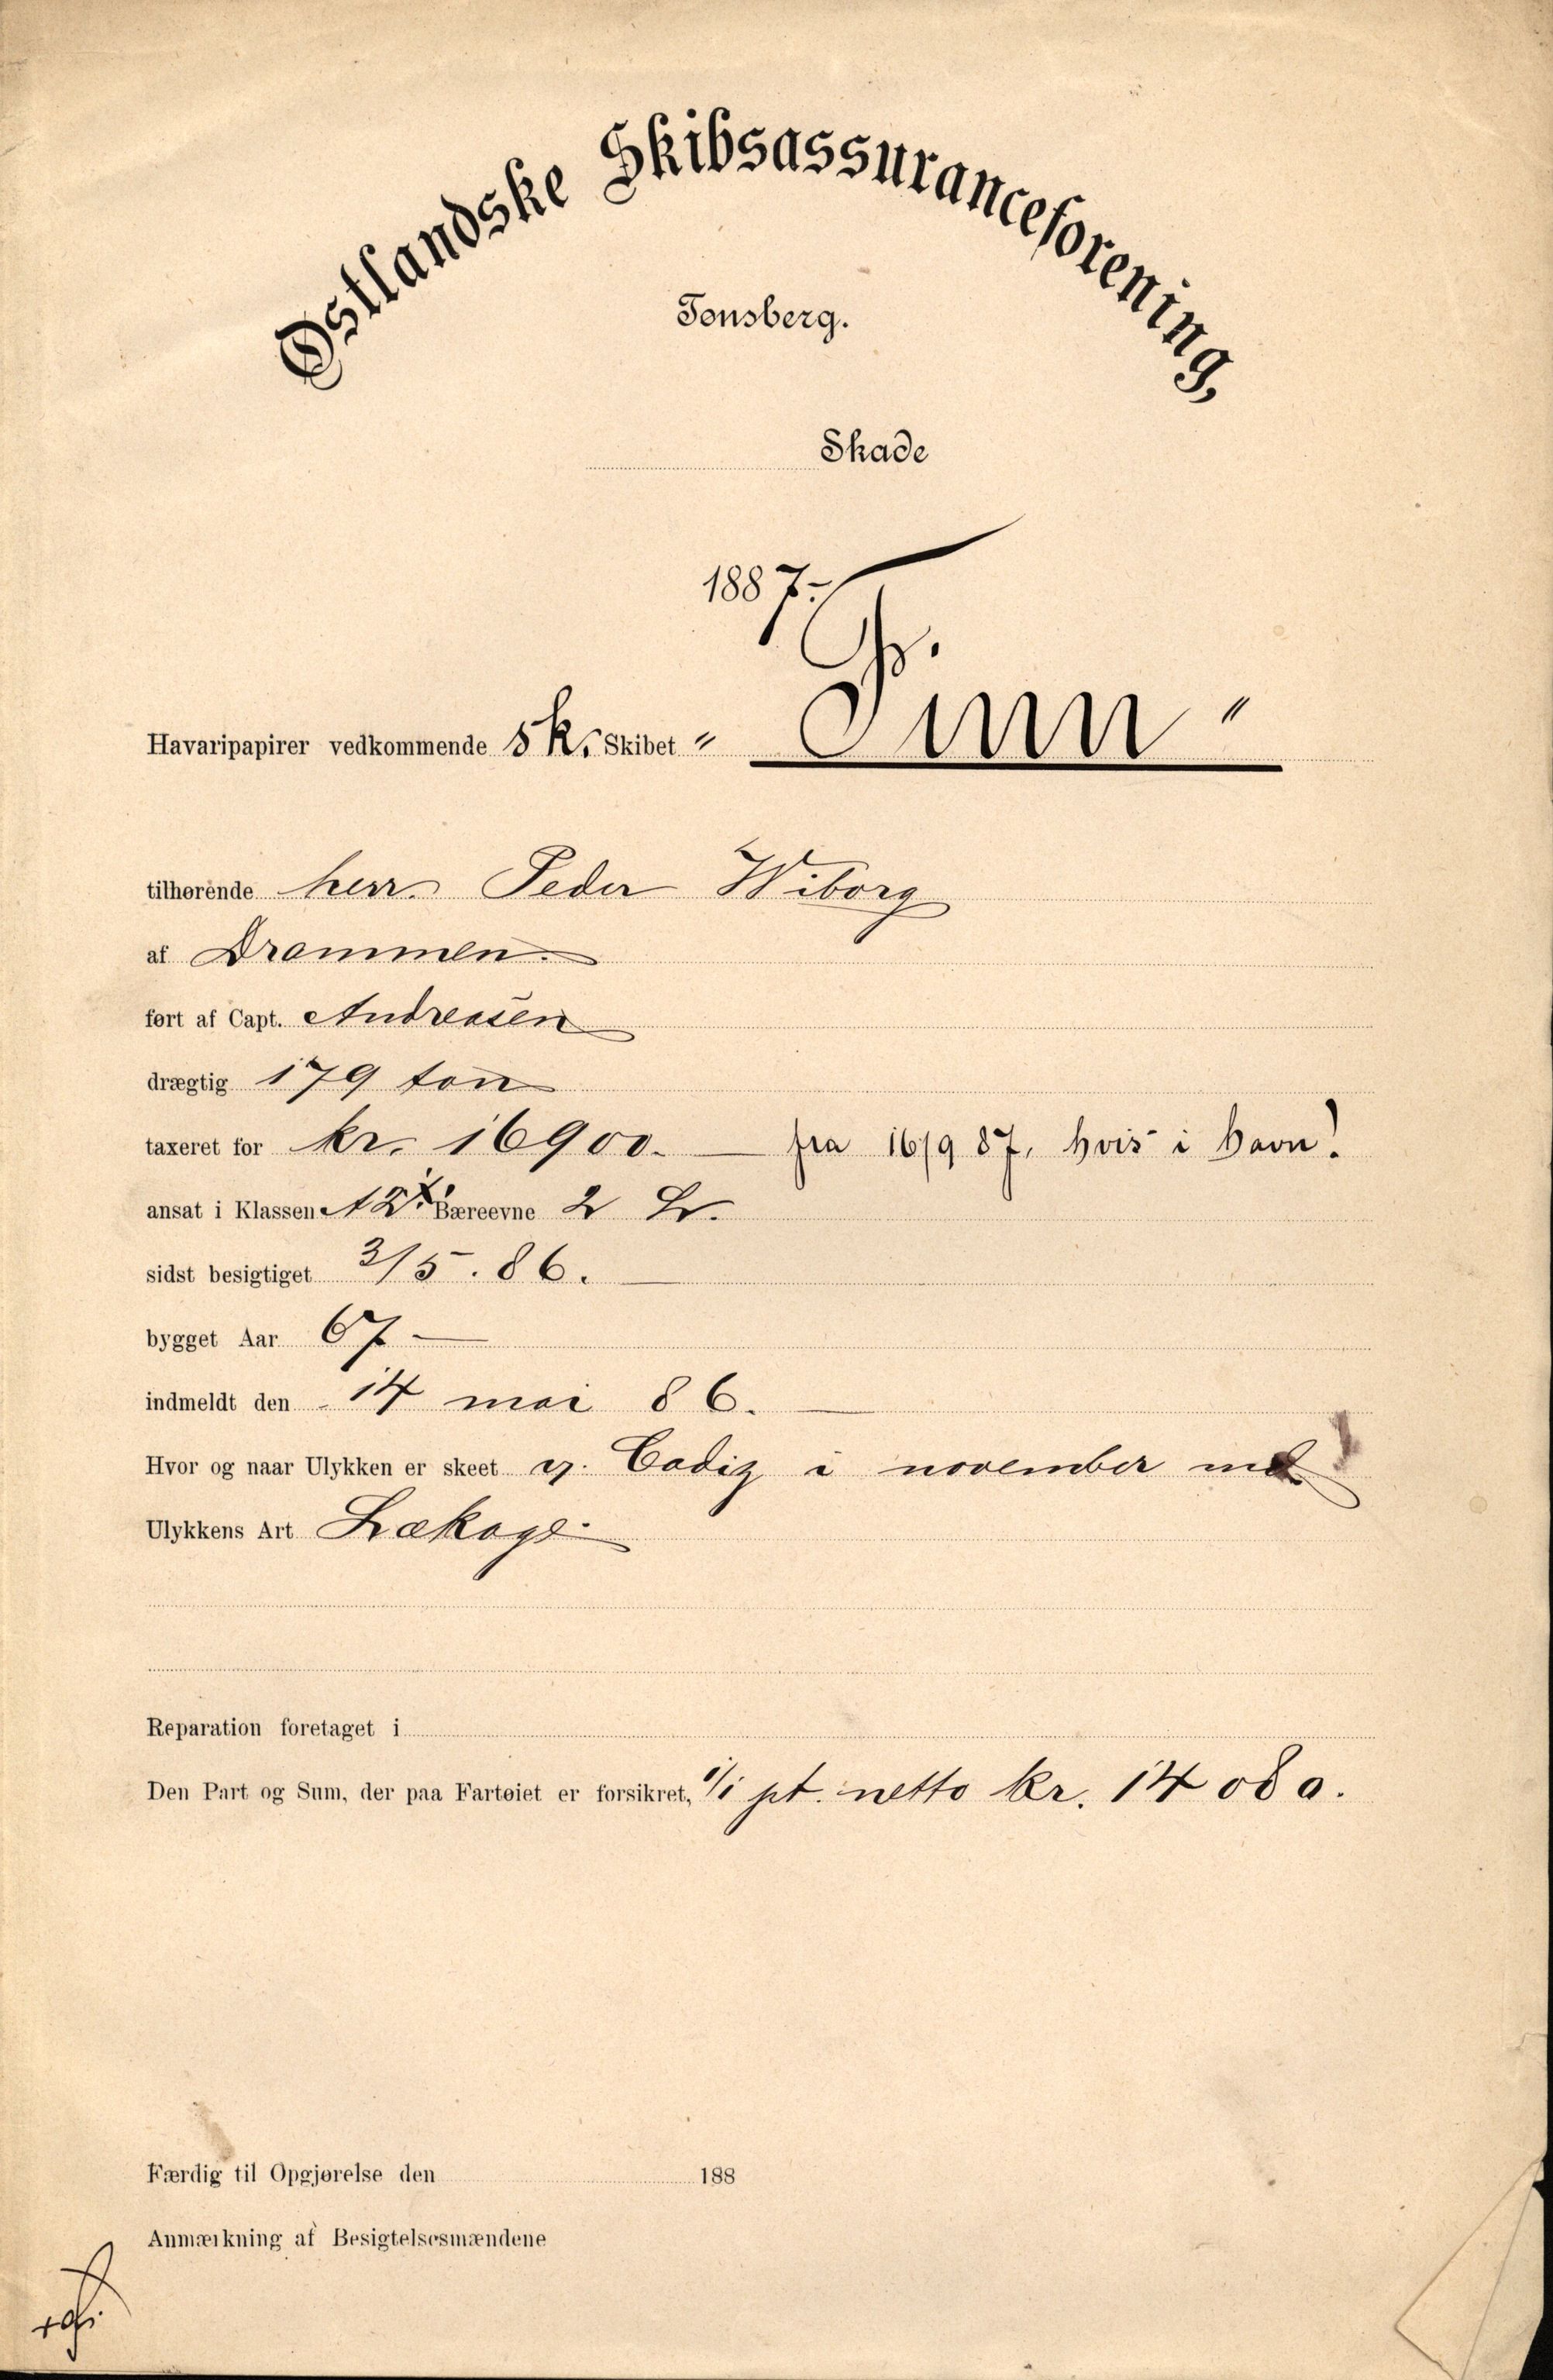 Østlandske Skibsassuranceforening,
Tønsberg.
Skade
1887.-
Havaripapirer vedkommende Sk. Skibet " Finn "
tilhørende herr. Peder Wiborg
af Drammen.
ført af Capt. Andreasen
drægtig 179 ton
taxeret for kr. 16900. — fra 16/9 87, hvis i havn!
ansat i Klassen A2 Bæreevne 2 L.
sidst besigtiget 3/5. 86. —
bygget Aar 67 —
indmeldt den 14 mai 86. —
Hvor og naar Ulykken er skeet v. Cadiz i november md.
Ulykkens Art Lækage.
Reparation foretaget i
Den Part og Sum, der paa Fartøiet er forsikret, 1/1 pt. netto kr. 14080.
Færdig til Opgjørelse den 188
Anmærkning af Besigtelsesmændene